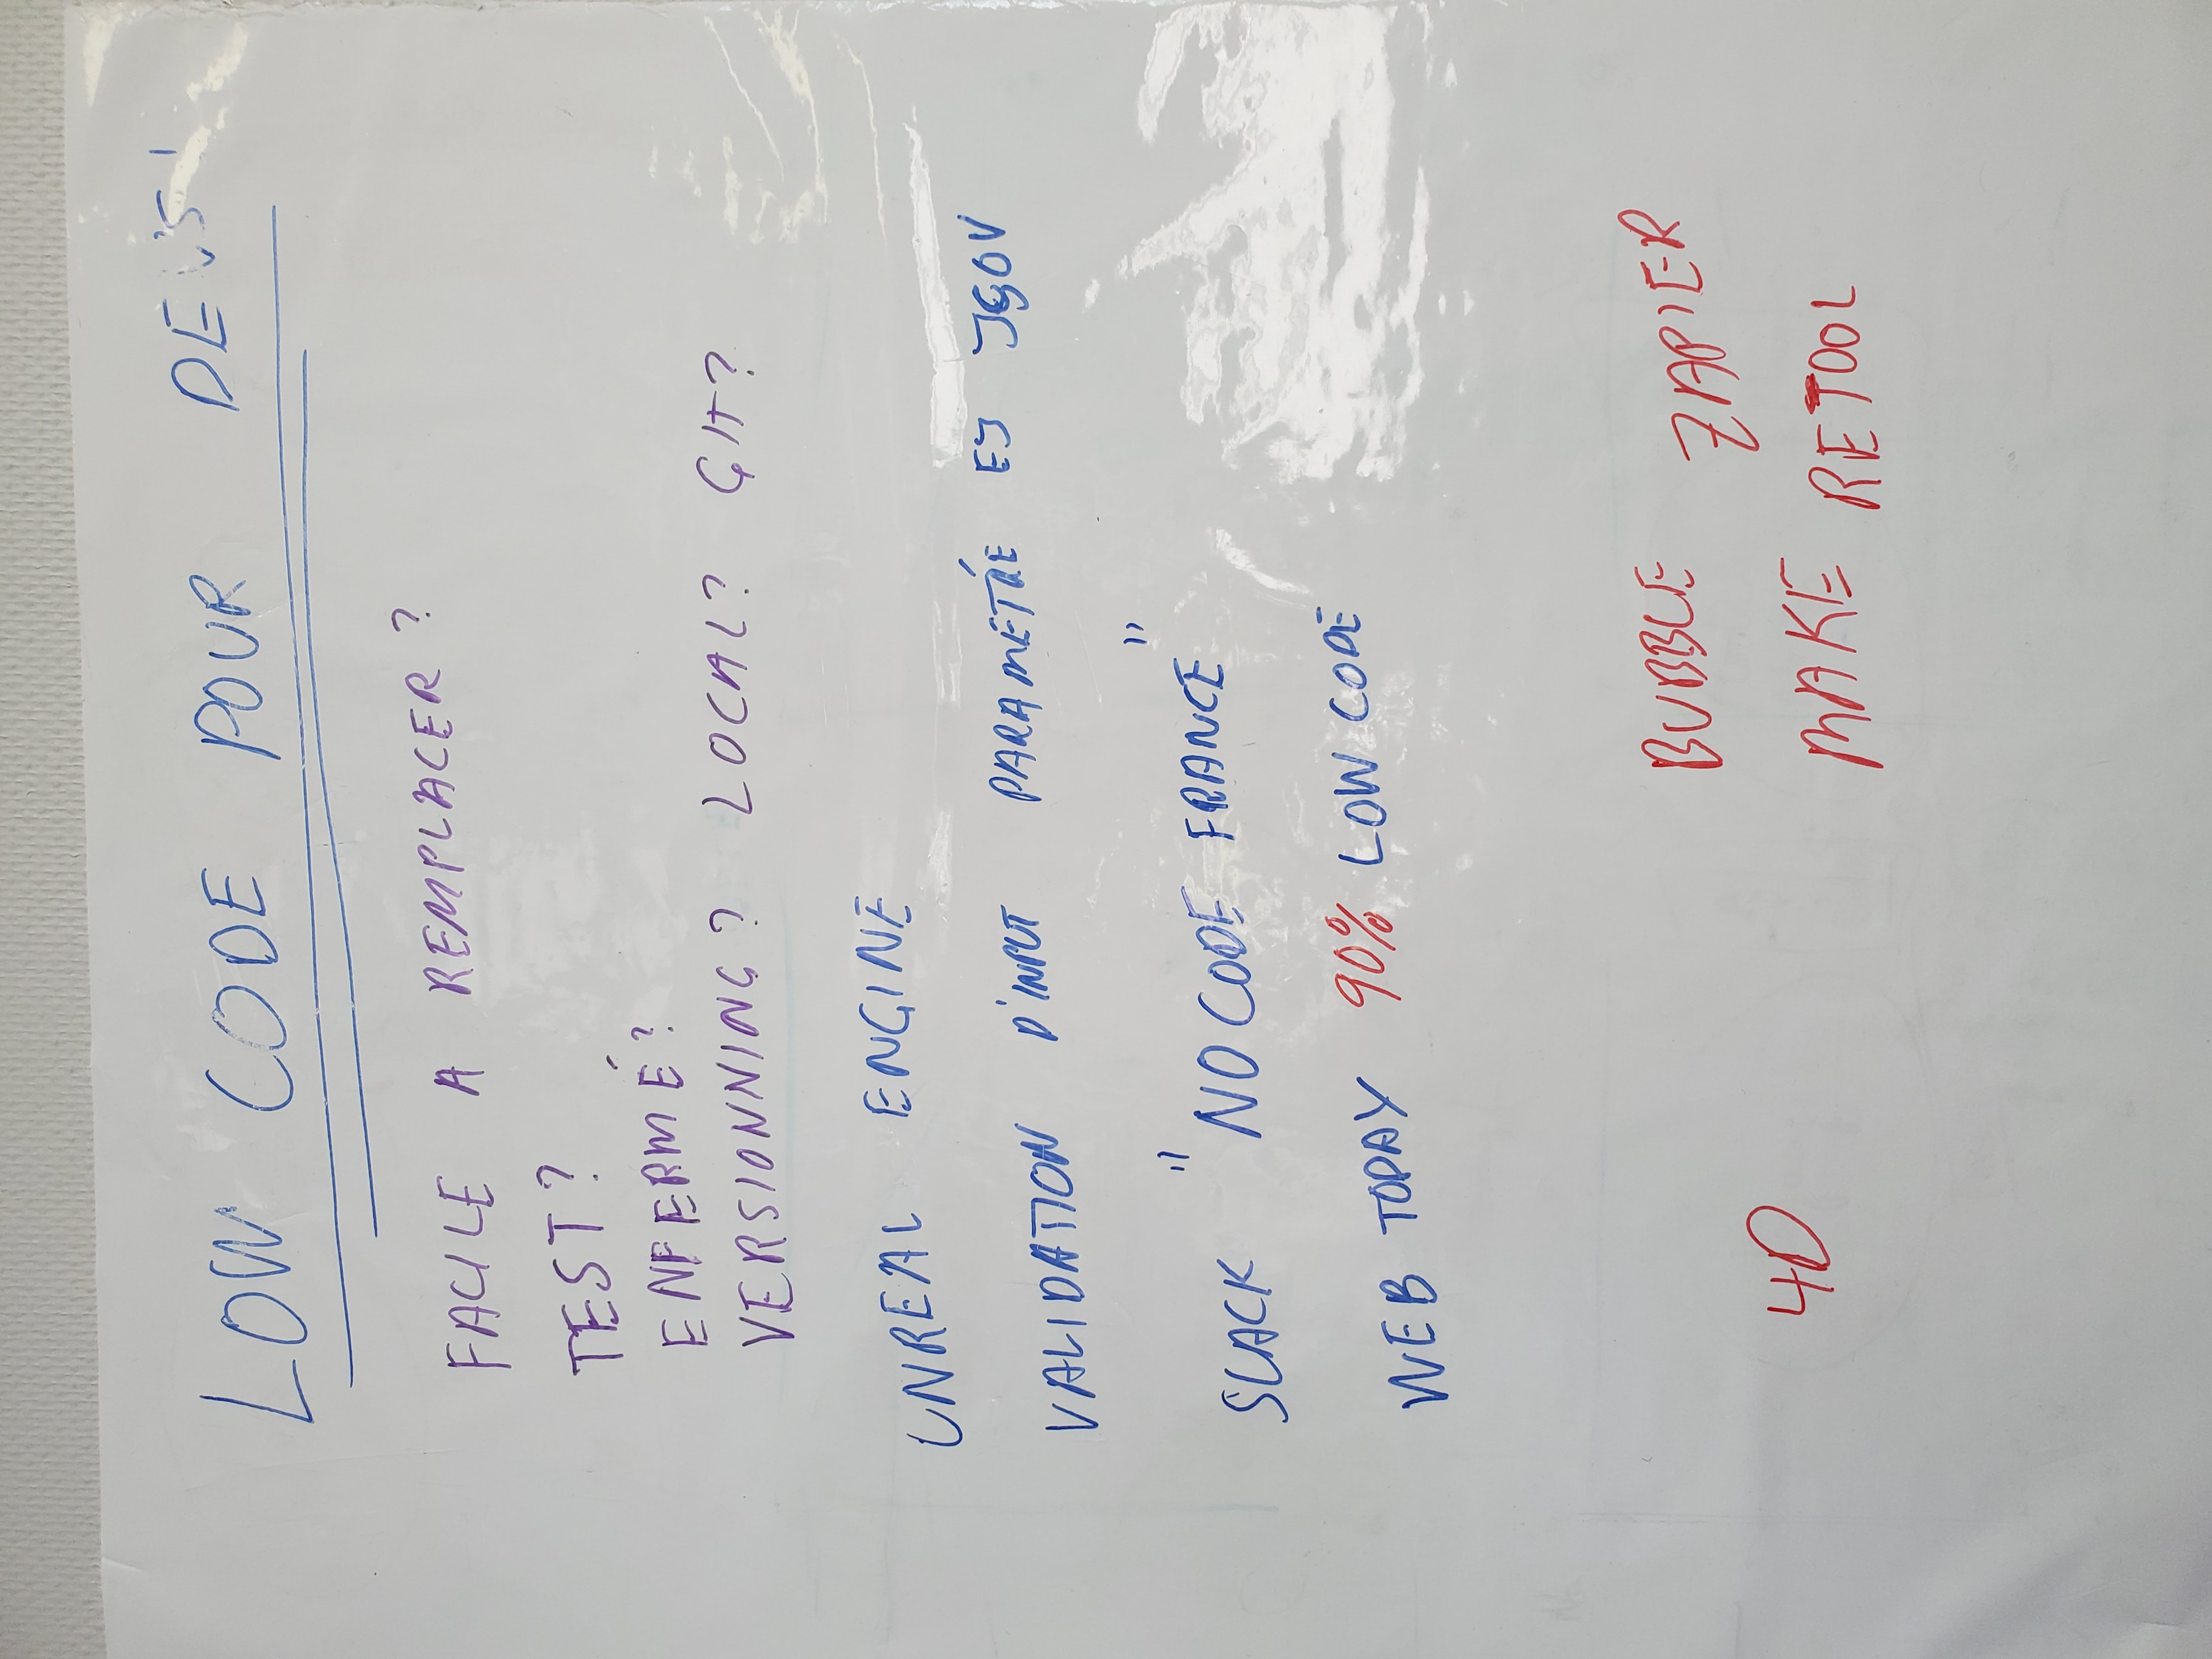 LOW CODE POUR DEVS !
FACILE A REMPLACER ?
TEST ?
ENFERMÉ ?
VERSIONNING ? LOCAL ? GIT ?
UNREAL ENGINE
VALIDATION D'INPUT PARAMETRÉ
SLACK "NO CODE FRANCE"
WEB TODAY 90% LOW CODE
BUBBLE ZAPIER
4D
MAKE RETOOL